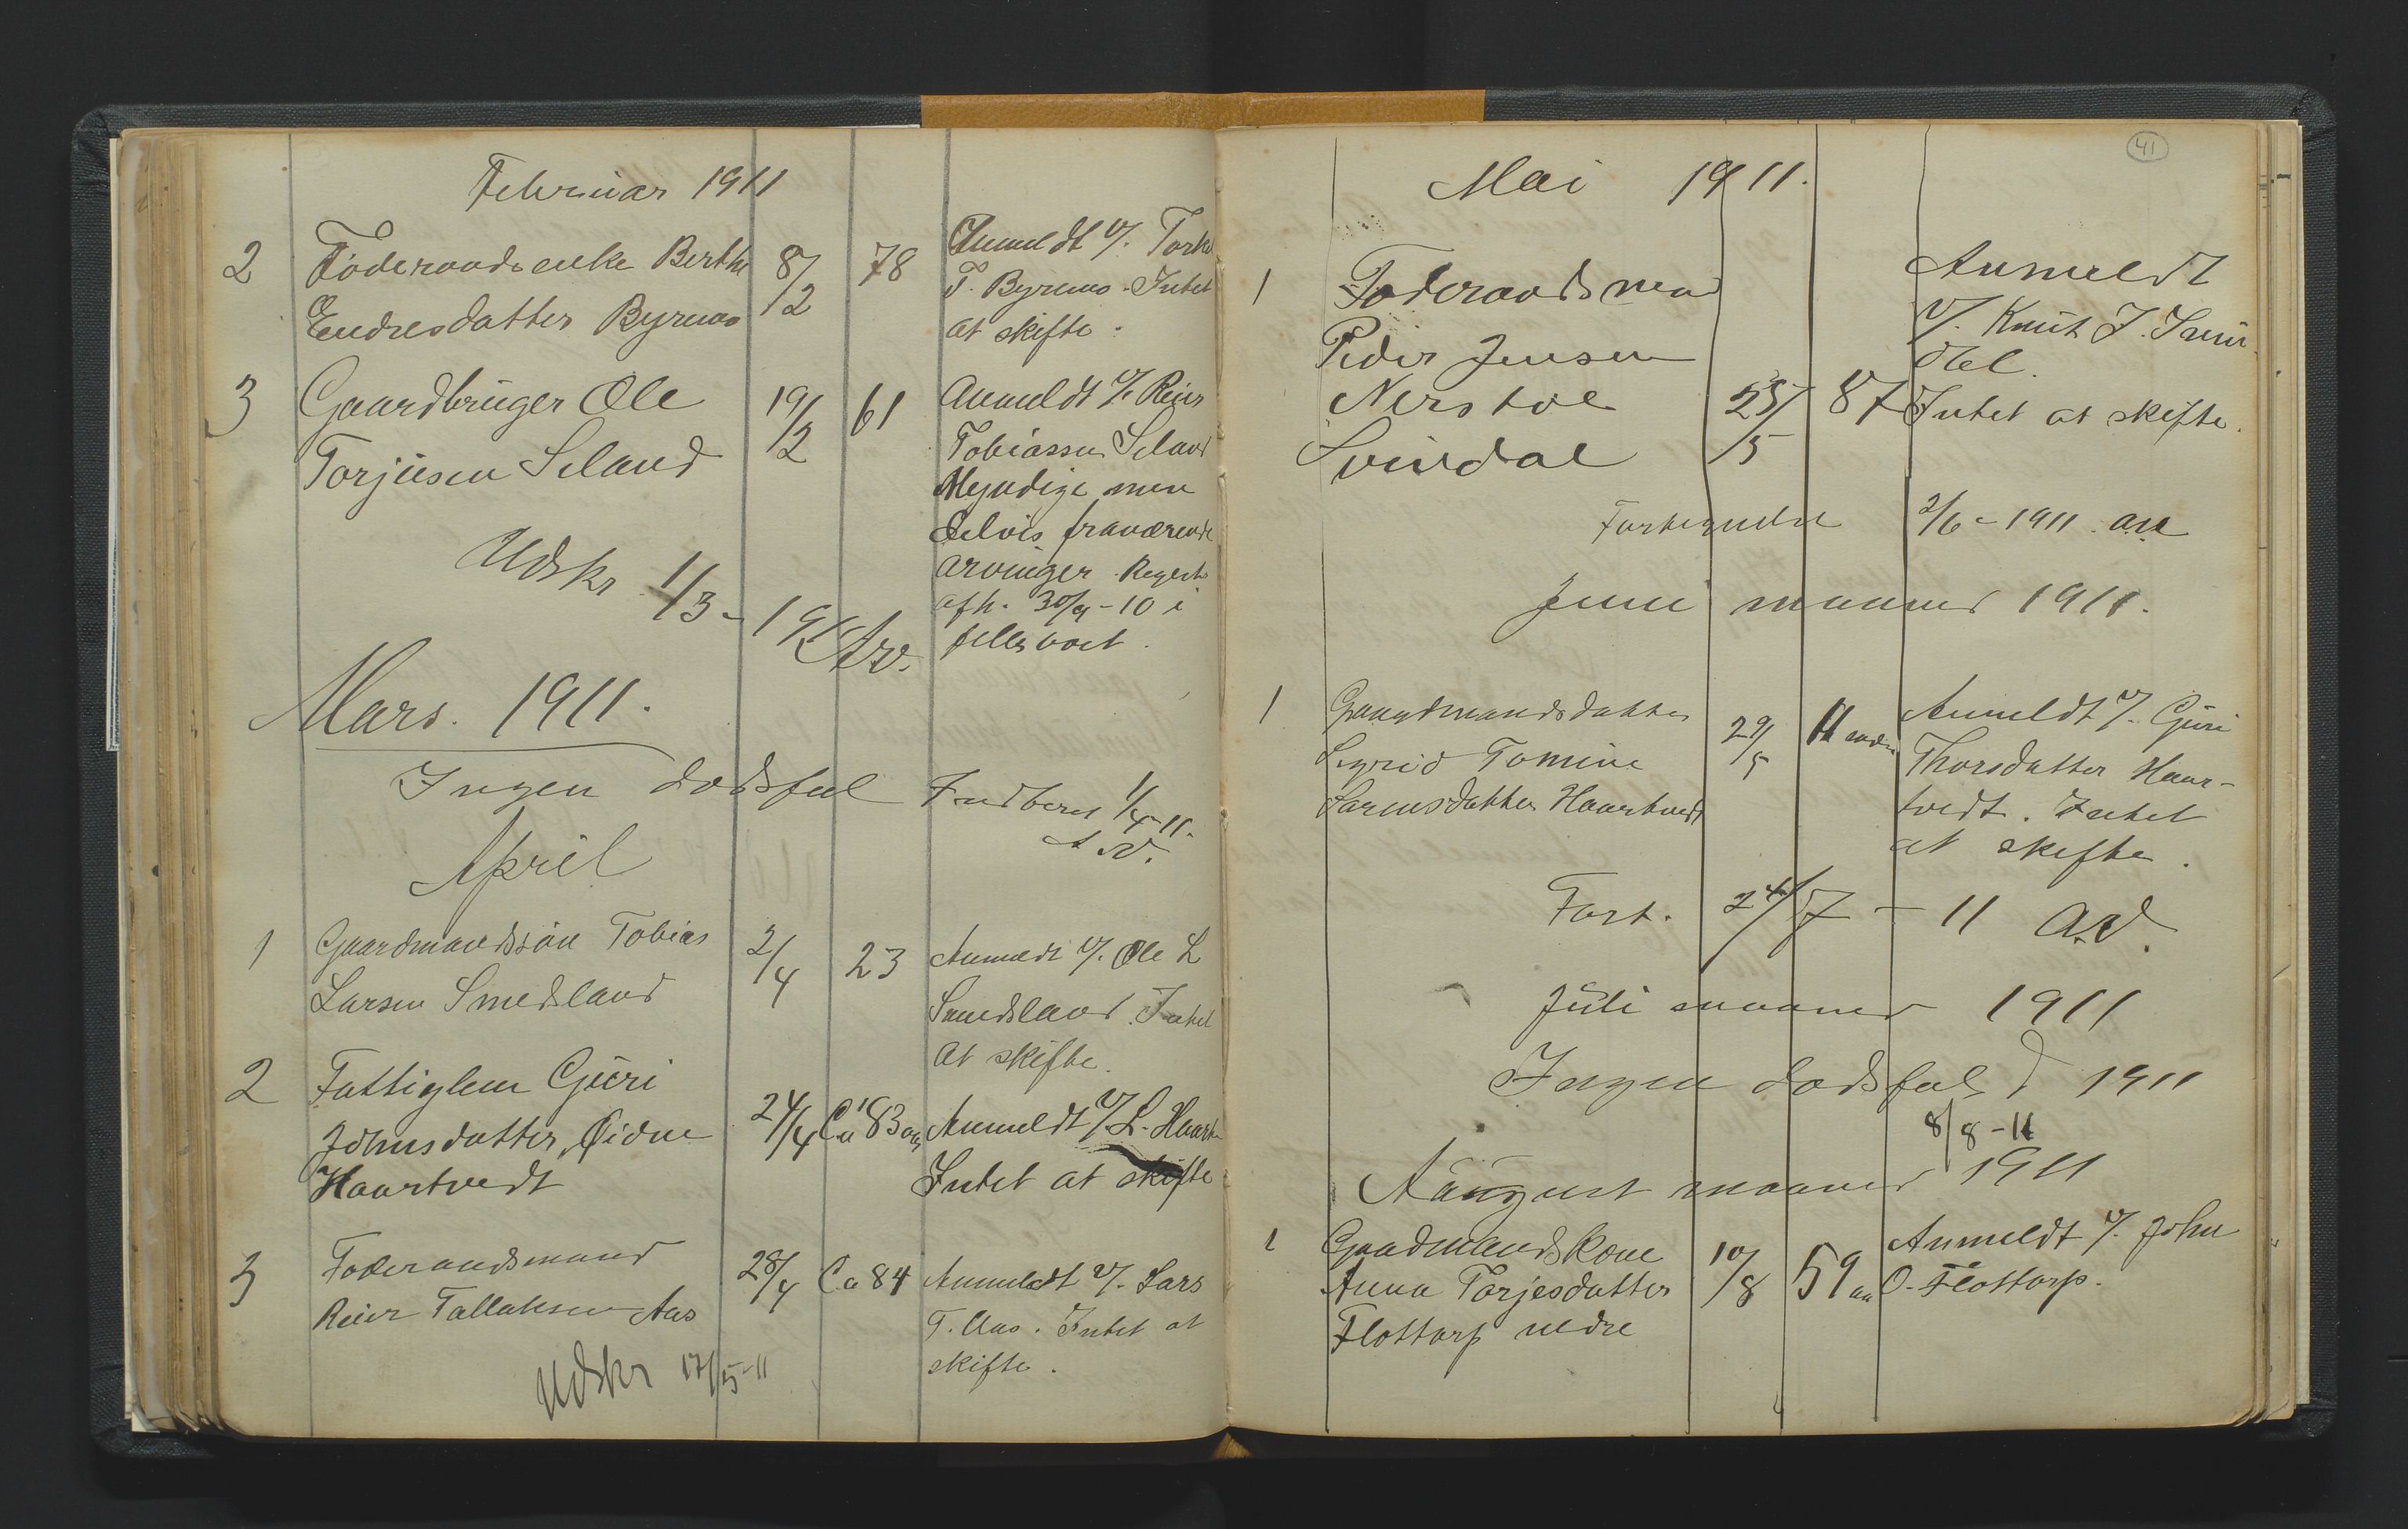 Februar 1911
2 Føderaadsenke Berthe 8/2 78 Anmeldt v/. Torkel
Endresdatter Byremo T. Byremo. Intet
at skifte.
3 Gaardbruger Ole 19/2 61 Anmeldt v/. Reier
Torjusen Seland Tobiassen Seland
Myndige men
delvis fraværende
arvinger. Regist.
afh. 30/9-10 i
fellsboet.
Udskr 1/3-1911 AV.
Mars. 1911.
Ingen dødsfal Indberet 1/4-11.
A.V.
April
1 Gaardmandssøn Tobias 2/4 23 Anmeldt v/. Ole L
Larsen Smedsland Smedsland. Intet
at skifte.
2 Fattiglem Guri
Johnsdatter, Øidne 24/4 Ca 83 aar Anmeldt v/. L. Haart.
Haartvedt Intet at skifte
3 Føderaadsmand 28/4 Ca 84 Anmeldt v/. Lars
Reier Tallaksen Aas T. Aas. Intet at
skifte.
Udskr 17/5-11
41
Mai 1911.
1 Føderaadsman Anmeldt
Peder Jensen v/. Knut J. Svin
Nerstol 25/5 87 dal.
Svindal Intet at skifte.
Fortegnelse 2/6-1911. AV
Juni maaned 1911.
1 Gaardmandsdatter 29/5 11 mdr Anmeldt v/. Guri
Sigrid Tomine Thorsdatter Haar-
Larensdatter Haartvedt tvedt. Intet
at skifte.
Fort. 24/7-11 A.V.
Juli maaned 1911
Ingen dødsfal 1911
8/8-11
August maaned 1911
1 Gaadmandskone 10/8 59 aar Anmeldt v/. John
Anna Torjesdatter O. Flottorp.
Flottorp nedre